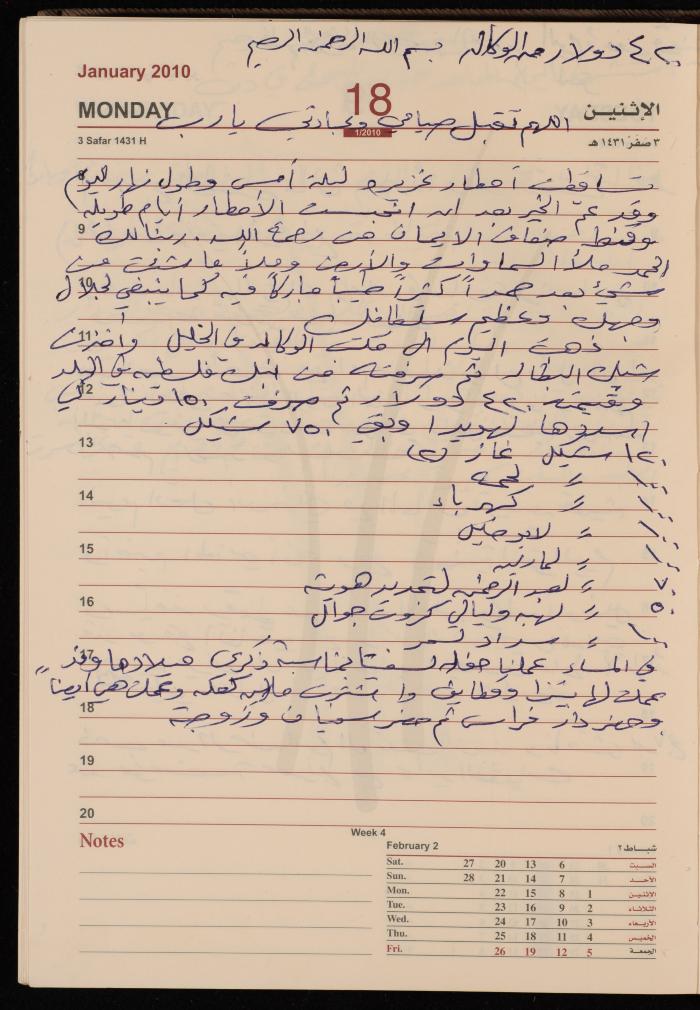 ٤٢٠ دولار من الوكالة بسم الله الرحمن الرحيم
January 2010
MONDAY 18 الإثنين
1/2010
اللهم تقبل صيامي وعبادتي يا رب
3 Safar 1431 H ٣ صَفَر ١٤٣١ هـ
تساقطت أمطار غزيرة ليلة أمس وطول نهار اليوم
وقد عمّ الخير بعد ان انحبست الأمطار أيام طويلة
9 وقنط ضعاف الايمان من رحمة الله. ربنا لك
الحمد ملأ السماوات والأرض وملأ ما شئت من
10 شيئ بعد حمداً كثيراً طيباً مباركاً فيه كما ينبغي لجلال
وجهك وعظيم سلطانك
11 ذهبت اليوم الى مكتب الوكالة في الخليل وأخذت
شيك البطالة ثم صرفته من بنك فلسطين في البلد
12 وقيمته ٤٢٠ دولار ثم صرفت ١٥٠ دينار لكي
اسددها لهويدا وبقي ٧٥٠ شيكل
13 ١٢٠ شيكل غاز (٢)
١٠٠ = لحمة
14 ١٠٠ = كهرباء
١٠٠ = لابو خليل
15 ١٠٠ =
٧٠ = لعبد الرحمن لتجديد هويته
16 ٥٠ = لهبه وليالي كروت جوال
١٠٠ = سداد
17 في المساء عملنا حفلة بمناسبة ذكرى ميلادها وقد
عملت لها بيتزا وقطايف واشترت كعكة وعملت هي أيضاً
18 وحضر دار فراس ثم حضر سفيان وزوجته
19
20
Notes
Week 4
February 2 شباط ٢
Sat. 27 20 13 6 السبت
Sun. 28 21 14 7 الأحد
Mon. 22 15 8 1 الاثنين
Tue. 23 16 9 2 الثلاثاء
Wed. 24 17 10 3 الأربعاء
Thu. 25 18 11 4 الخميس
Fri. 26 19 12 5 الجمعة